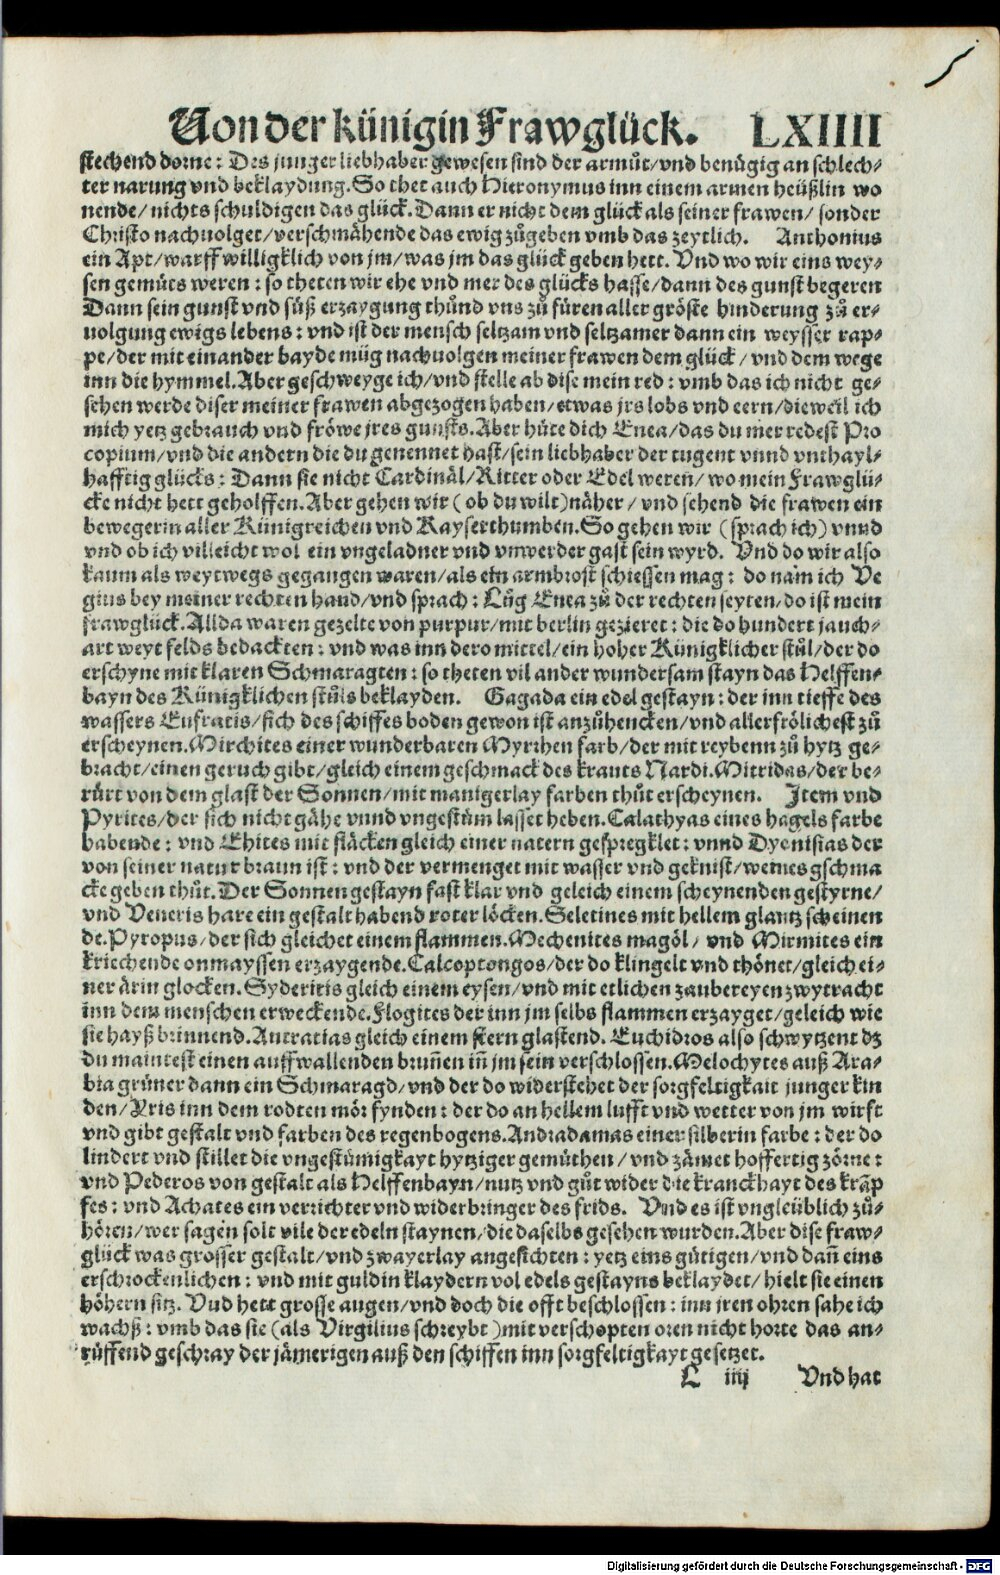 Von der künigin Frawglück. LXIIII
stechend dorne: Des junger liebhaber gewesen sind der armůt/vnd benügig an schlech-
ter narung vnd beklaydung. So thet auch Hieronymus inn einem armen heüßlin wo
nende/nichts schuldigen das glück. Dann er nicht dem glück als seiner frawen/sonder
Christo nachuolget/verschmähende das ewig zůgeben vmb das zeytlich. Anthonius
ein Apt/warff willigklich von jm/was jm das glück geben hett. Vnd wo wir eins wey-
sen gemüts weren: so theten wir ehe vnd mer des glücks hasse/dann des gunst begeren
Dann sein gunst vnd süß erzaygung thůnd vns zů füren aller gröste hinderung zů er-
uolgung ewigs lebens: vnd ist der mensch seltzam vnd seltzamer dann ein weysser rap-
pe/der mit einander bayde müg nachuolgen meiner frawen dem glück/vnd dem wege
inn die hymmel. Aber geschweyge ich/vnd stelle ab dise mein red: vmb das ich nicht ge-
sehen werde diser meiner frawen abgezogen haben/etwas jrs lobs vnd eern/dieweil ich
mich yetz gebrauch vnd fröwe jres gunsts. Aber hüte dich Enea/das du mer redest Pro
copium/vnd die andern die du genennet hast/sein liebhaber der tugent vnnd vnthayl-
hafftig glücks: Dann sie nicht Cardinäl/Ritter oder Edel weren/wo mein Frawglü-
cke nicht hett geholffen. Aber gehen wir (ob du wilt) näher/vnd sehend die frawen ein
bewegerin aller Künigreichen vnd Kayserthumben. So gehen wir (sprach ich) vnnd
vnd ob ich villeicht wol ein vngeladner vnd vnwerder gast sein wyrd. Vnd do wir also
kaum als weyt wegs gegangen waren/als ein armbrost schiessen mag: do nam ich Ve
gius bey meiner rechten hand/vnd sprach: Lůg Enea zů der rechten seyten/do ist mein
frawglück. Allda waren gezelte von purpur/mit berlin gezieret: die do hundert jauch-
art weyt felds bedackten: vnd was inn dero mittel/ein hoher Künigklicher stůl/der do
erschyne mit klaren Schmaragten: so theten vil ander wundersam stayn das Helffen-
bayn des Künigklichen stůls beklayden. Gagada ein edel gestayn: der inn tieffe des
wassers Eufratis/sich des schiffes boden gewon ist anzůhencken/vnd allerfrölichest zů
erscheynen. Mirchites einer wunderbaren Myrrhen farb/der mit reybenn zů hytz ge-
bracht/einen geruch gibt/gleich einem geschmack des krauts Nardi. Mitridas/der be-
rürt von dem glast der Sonnen/mit manigerlay farben thůt erscheynen. Item vnd
Pyrites/der sich nicht gähe vnnd vngestüm lasset heben. Calathyas eines hagels farbe
habende: vnd Ehites mit fläcken gleich einer natern gespregklet: vnnd Dyonisias der
von seiner natur braun ist: vnd der vermenget mit wasser vnd geknist/weines gschma
cke geben thůt. Der Sonnengestayn fast klar vnd geleich einem scheynenden gestyrne/
vnd Veneris hare ein gestalt habend roter löcken. Seletines mit hellem glantz scheinen
de. Pyropus/der sich gleichet einem flammen. Mechenites magöl/vnd Mirmites ein
kriechende onmayssen erzaygende. Calcoptongos/der do klingelt vnd thönet/gleich ei-
ner ärin glocken. Syderitis gleich einem eysen/vnd mit etlichen zaubereyen zwytracht
inn dem menschen erweckende. Flogites der inn jm selbs flammen erzayget/geleich wie
sie hayß brinnend. Antratias gleich einem stern glastend. Euchidros also schwytzent dz
du maintest einen auffwallenden brunẽn iñ jm sein verschlossen. Melochytes auß Ara-
bia grüner dann ein Schmaragd/vnd der do widerstehet der sorgfeltigkait junger kin
den/Yris inn dem rodten mör fynden: der do an hellem lufft vnd wetter von jm wirft
vnd gibt gestalt vnd farben des regenbogens. Andradamas einer silberin farbe: der do
lindert vnd stillet die vngestümigkayt hytziger gemüthen/vnd zämet hoffertig zörne:
vnd Pederos von gestalt als Helffenbayn/nutz vnd gůt wider die kranckhayt des krãp
fes: vnd Achates ein verrichter vnd widerbringer des frids. Vnd es ist vngleüblich zů-
hören/wer sagen solt vile der edeln staynen/die daselbs gesehen wurden. Aber dise fraw-
glück was grosser gestalt/vnd zwayerlay angesichten: yetz eins gütigen/vnd dañ eins
erschrockenlichen: vnd mit guldin klaydern vol edels gestayns beklaydet/hielt sie einen
höhern sitz. Vnd hett grosse augen/vnd doch die offt beschlossen: inn jren ohren sahe ich
wachß: vmb das sie (als Virgilius schreybt) mit verschopten oren nicht horte das an-
rüffend geschray der jämerigen auß den schiffen inn sorgfeltigkayt gesetzet.
L iiij Vnd hat
Digitalisierung gefördert durch die Deutsche Forschungsgemeinschaft - DFG